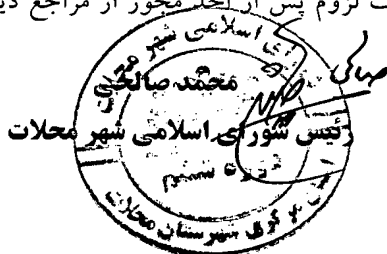 لزوم پس از اخذ مجوز از مراجع
محمد صالحی
رئیس شورای اسلامی شهر محلات
ای اسلامی شهر
مرکزی شهرستان محلات